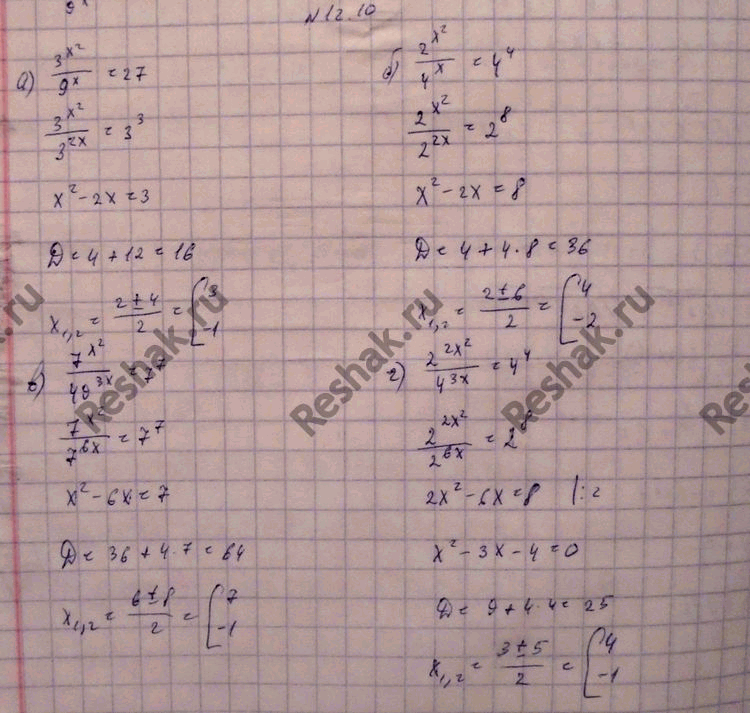 9ˣ
N12.10
а) 3^x² / 9^x = 27
3^x² / 3^2x = 3³
x² - 2x = 3
D = 4 + 12 = 16
x₁,₂ = (2 ± 4) / 2 = [ 3 -1
б) 2^x² / 4^x = 4⁴
2^x² / 2^2x = 2⁸
x² - 2x = 8
D = 4 + 4·8 = 36
x₁,₂ = (2 ± 6) / 2 = [ 4 -2
в) 7^x² / 49^3x = 7⁷
7^x² / 7^6x = 7⁷
x² - 6x = 7
D = 36 + 4·7 = 64
x₁,₂ = (6 ± 8) / 2 = [ 7 -1
г) 2^2x² / 4^3x = 4⁴
2^2x² / 2^6x = 2⁸
2x² - 6x = 8 |:2
x² - 3x - 4 = 0
D = 9 + 4·4 = 25
x₁,₂ = (3 ± 5) / 2 = [ 4 -1
Reshak.ru
Reshak.ru
Reshak.ru
Reshak.ru